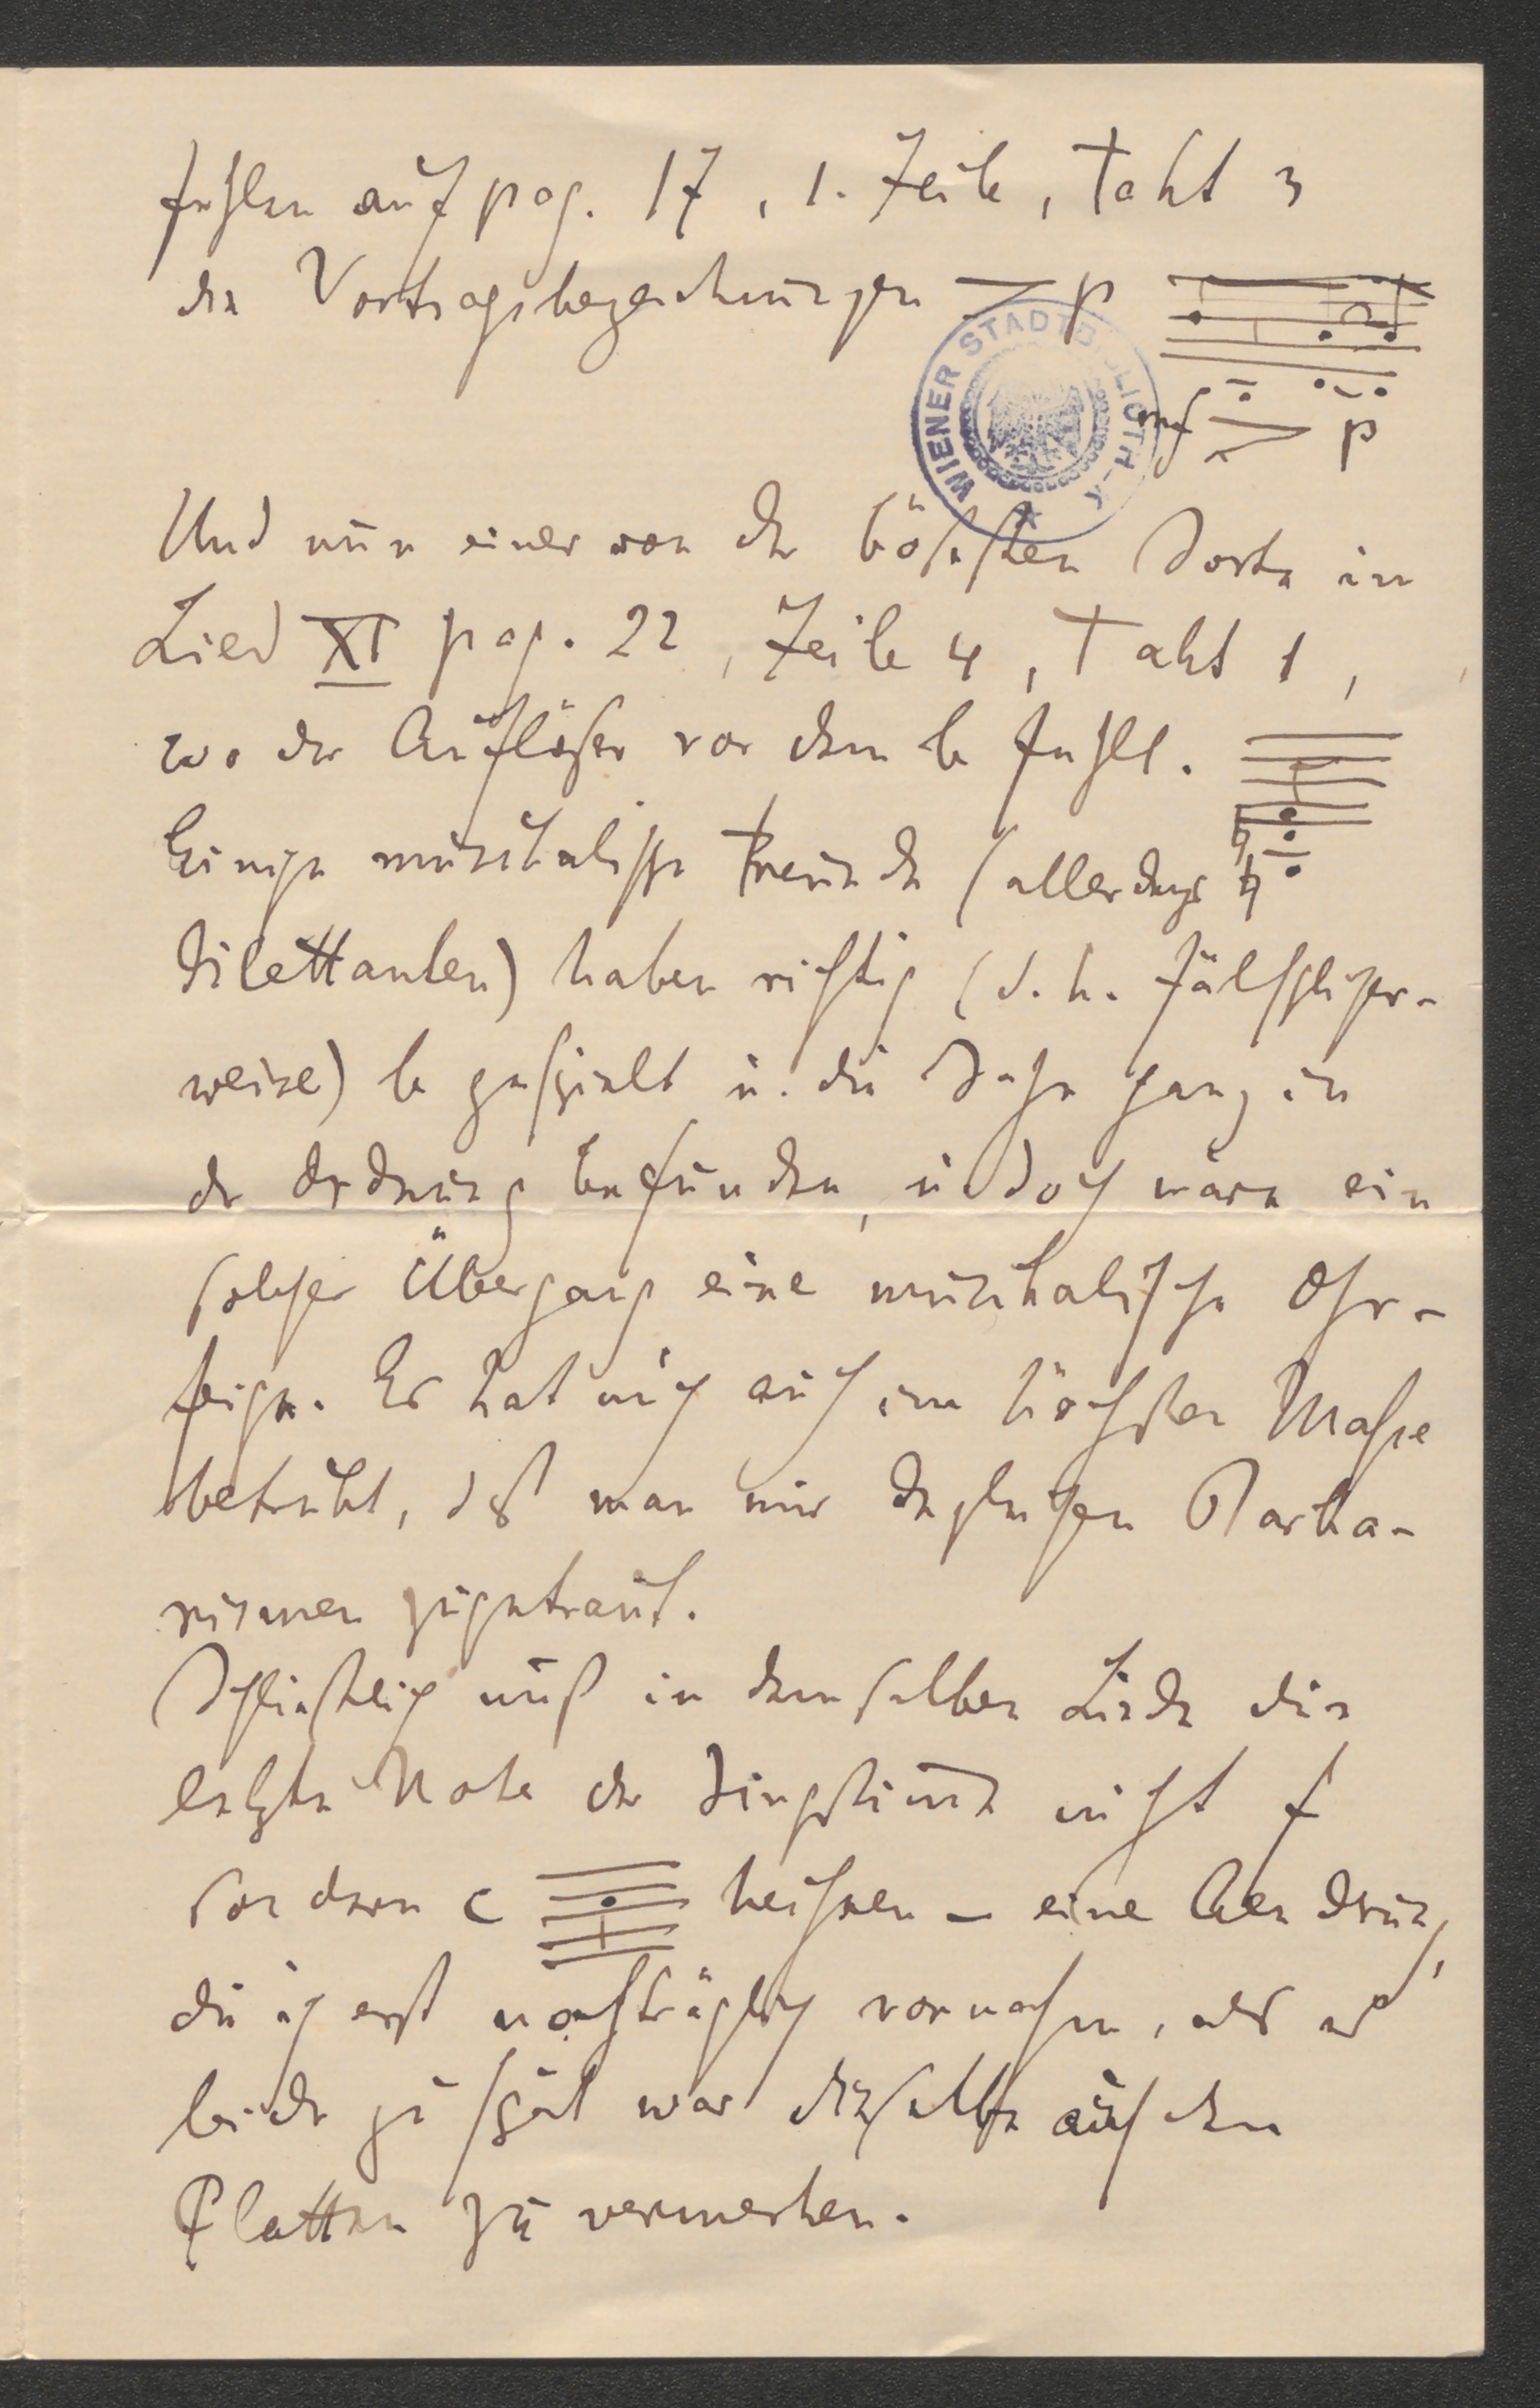 fehlen auf pag. 17, 1. Zeile, Takt 3
die Vortragsbezeichnungen > p
mf > p
WIENER STADTBIBLIOTHEK
Und nun einer von der bösesten Sorte in
Lied XI pag. 22, Zeile 4, Takt 1,
wo der Auflöser vor dem b fehlt.
Einige musikalische Freunde (allerdings
Dilettanten) haben richtig (d. h. fälschlicher-
weise) b gespielt u. die Sache ganz in
der Ordnung befunden, u. doch wäre ein
solcher Übergang eine musikalische Ohr-
feige. Es hat mich auch im höchsten Masse
betrübt, daß man mir dergleichen Barba-
rismen zugetraut.
Schließlich muß in demselben Liede die
letzte Note der Singstimme nicht f
sondern c heissen – eine Aenderung,
die ich erst nachträglich vornahm, als es
leider zu spät war dieselbe auf den
Platten zu vermerken.